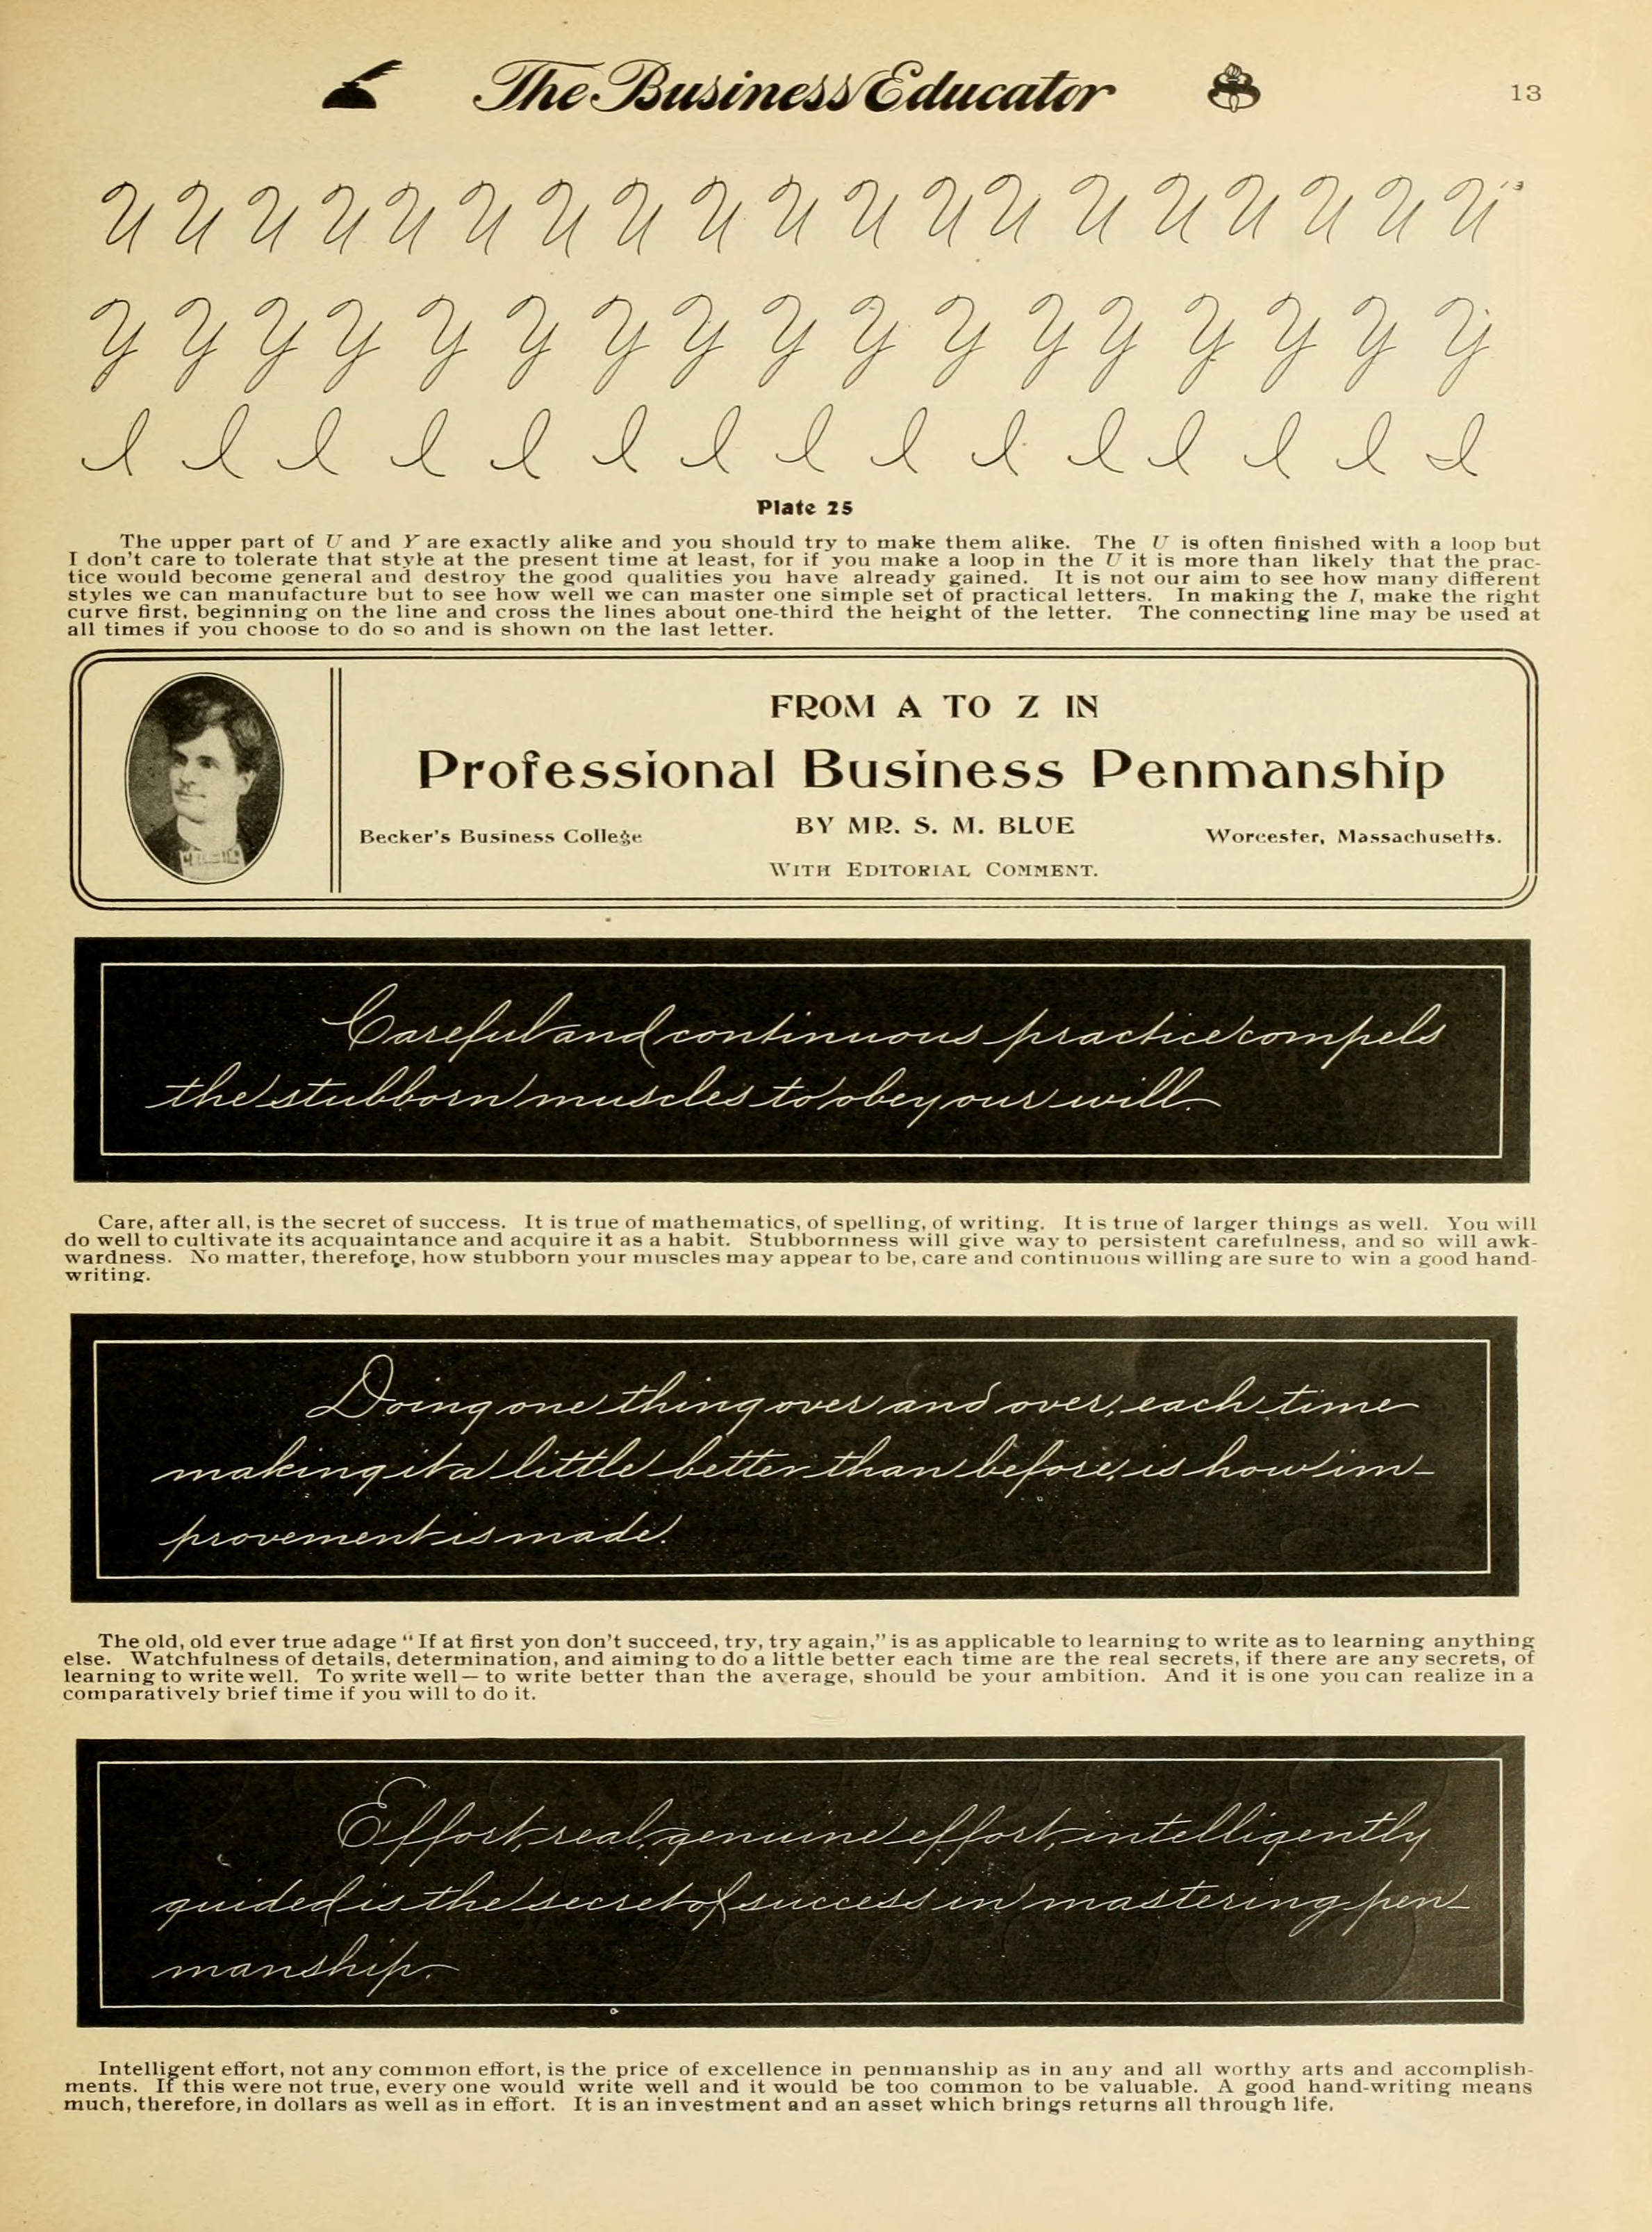 The Business Educator
13
U U U U U U U U U U U U U U U U U U U
Y Y Y Y Y Y Y Y Y Y Y Y Y Y Y Y Y
I I I I I I I I I I I I I I I
Plate 25
The upper part of U and Y are exactly alike and you should try to make them alike. The U is often finished with a loop but
I don't care to tolerate that style at the present time at least, for if you make a loop in the U it is more than likely that the prac-
tice would become general and destroy the good qualities you have already gained. It is not our aim to see how many different
styles we can manufacture but to see how well we can master one simple set of practical letters. In making the I, make the right
curve first, beginning on the line and cross the lines about one-third the height of the letter. The connecting line may be used at
all times if you choose to do so and is shown on the last letter.
FROM A TO Z IN
Professional Business Penmanship
BY MR. S. M. BLUE
Becker's Business College
Worcester, Massachusetts.
WITH EDITORIAL COMMENT.
Careful and continuous practice compels
the stubborn muscles to obey our will.
Care, after all, is the secret of success. It is true of mathematics, of spelling, of writing. It is true of larger things as well. You will
do well to cultivate its acquaintance and acquire it as a habit. Stubbornness will give way to persistent carefulness, and so will awk-
wardness. No matter, therefore, how stubborn your muscles may appear to be, care and continuous willing are sure to win a good hand-
writing.
Doing one thing over and over, each time
making it a little better than before, is how im-
provement is made.
The old, old ever true adage "If at first yon don't succeed, try, try again," is as applicable to learning to write as to learning anything
else. Watchfulness of details, determination, and aiming to do a little better each time are the real secrets, if there are any secrets, of
learning to write well. To write well—to write better than the average, should be your ambition. And it is one you can realize in a
comparatively brief time if you will to do it.
Effort, real, genuine effort, intelligently
guided is the secret of success in mastering pen-
manship.
Intelligent effort, not any common effort, is the price of excellence in penmanship as in any and all worthy arts and accomplish-
ments. If this were not true, every one would write well and it would be too common to be valuable. A good hand-writing means
much, therefore, in dollars as well as in effort. It is an investment and an asset which brings returns all through life.